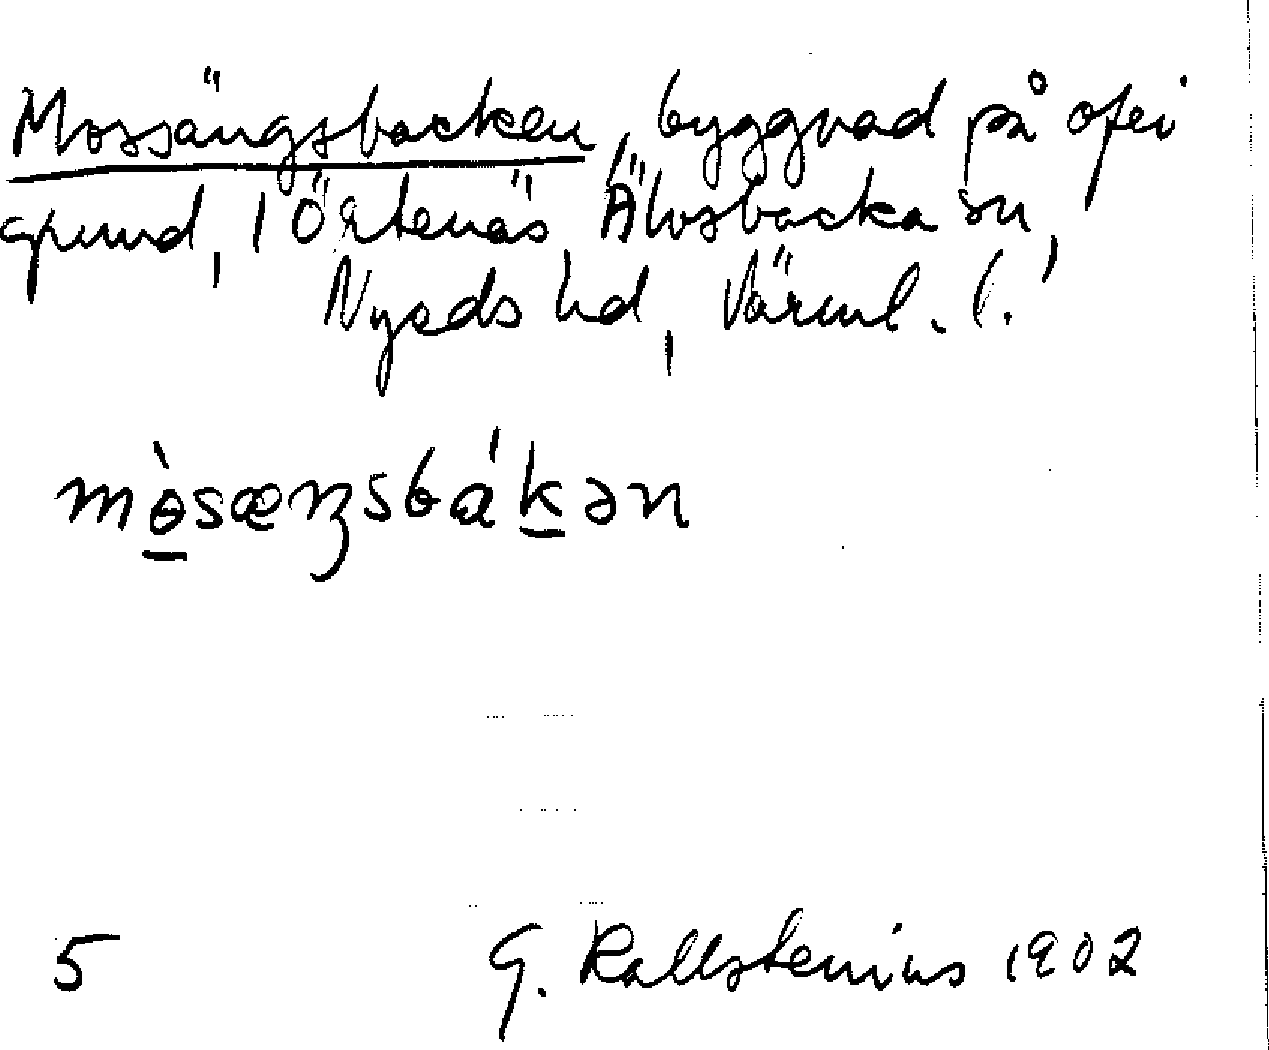 Mossängsbacken, byggnad på ofri
grund, 1 Örtenäs, Älvsbacka sn,
Nyeds hd, Värml. l.
mòsæŋsbákən
5 G. Kallstenius 1902